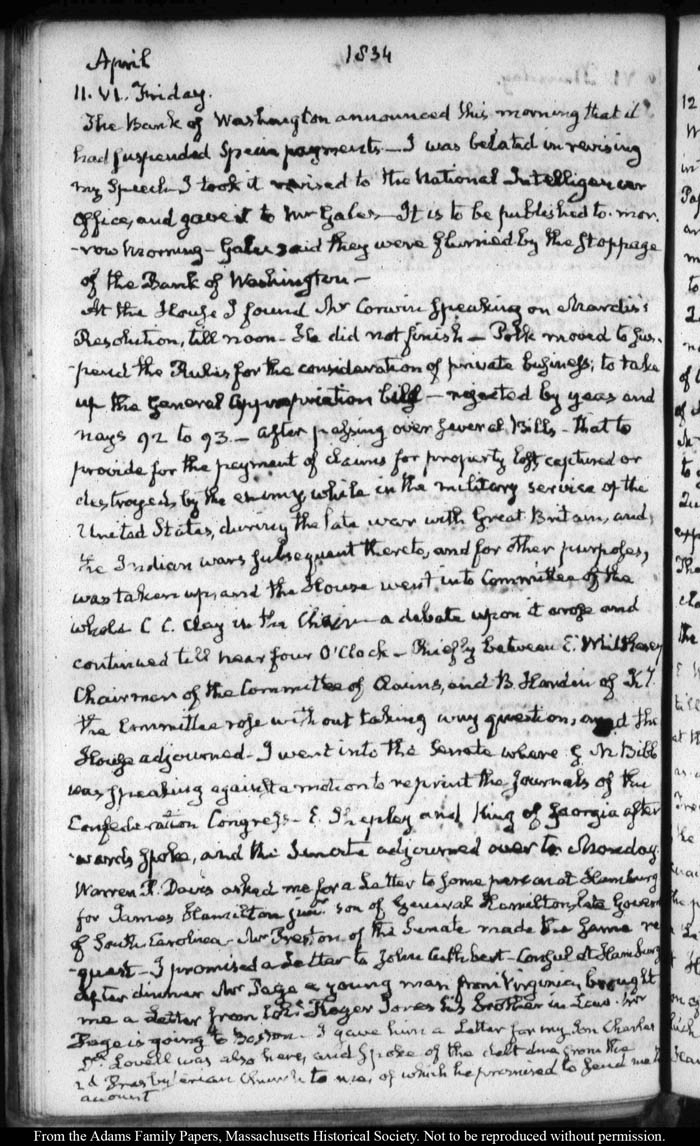 April
1834
11. VI. Friday.
The Bank of Washington announced this morning that it
had suspended Specie payments — I was belated in revising
my Speech — I took it revised to the National Intelligencer
Office, and gave it to Mr Gales — It is to be published to-mor-
-row Morning — Gales said they were flurried by the stoppage
of the Bank of Washington —
At the House I found Mr Corwin speaking on Mardis's
Resolution, till noon — He did not finish — Polk moved to sus-
-pend the Rules for the consideration of private business; to take
up the General Appropriation bill — rejected by yeas and
nays 92 to 93. — After passing over several Bills — that to
provide for the payment of claims for property lost, captured or
destroyed by the enemy while in the military service of the
United States, during the late war with Great Britain, and
the Indian wars subsequent thereto, and for other purposes,
was taken up, and the House went into Committee of the
whole C C. Clay in the Chair — a debate upon it arose and
continued till near four O'Clock — Chiefly between E. Whittlesey
Chairman of the Committee of Claims, and B. Hardin of Ky.
the Committee rose without taking any question, and the
House adjourned — I went into the Senate where G. M Bibb
was speaking against a motion to reprint the Journals of the
Confederation Congress — E. Shepley and King of Georgia after
-wards spoke, and the Senate adjourned over to Monday.
Warren R. Davis asked me for a Letter to some person at Hamburg
for James Hamilton junr. son of General Hamilton, late Govern
of South Carolina — Mr Preston of the Senate made the same re
-quest — I promised a Letter to John Cuthbert — Consul at Hamburg
After dinner Mr Page a young man from Virginia, brought
me a Letter from Roger Jones his brother in Law. Mr
Page is going to Boston — I gave him a Letter for my Son Charles
Dr. Lovell was also here, and spoke of the debt due from the
2d Presbyterian Church to me, of which he promised to send me the
account
From the Adams Family Papers, Massachusetts Historical Society. Not to be reproduced without permission.